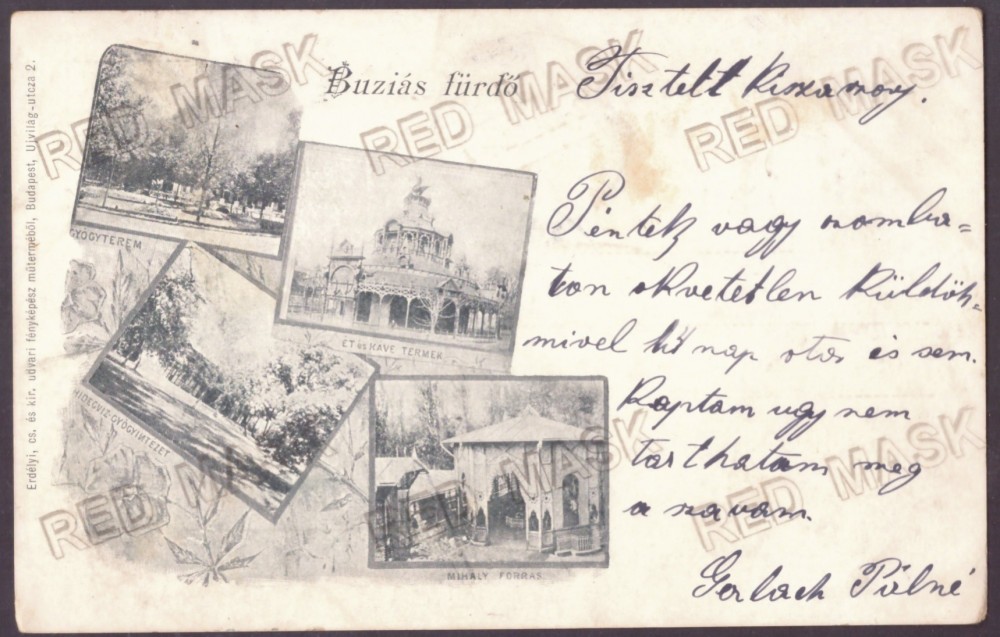 Buziás fürdő
Tisztelt Kisza mony.
GYÓGYTEREM
ÉT és KÁVÉ TERMEK
HIDEGVIZ-GYÓGYINTÉZET
MIHÁLY FORRÁS
Péntek vagy szomba=
ton okvetetlen Küldök,
mivel hű nap ota és sem
Kaptam ugy nem
tarthatam meg
a szavam.
Gerlach Pálné
Erdélyi, cs. és kir. udvari fényképész műterméből, Budapest, Ujvilág-utcza 2.
RED MASK
RED MASK
RED MASK
RED MASK
RED MASK
RED MASK
RED MASK
RED MASK
RED MASK